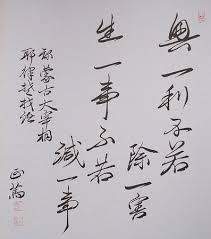 興一利不若
除一害
生一事不若
減一事
録蒙古大宰相
耶律楚材語
正篤